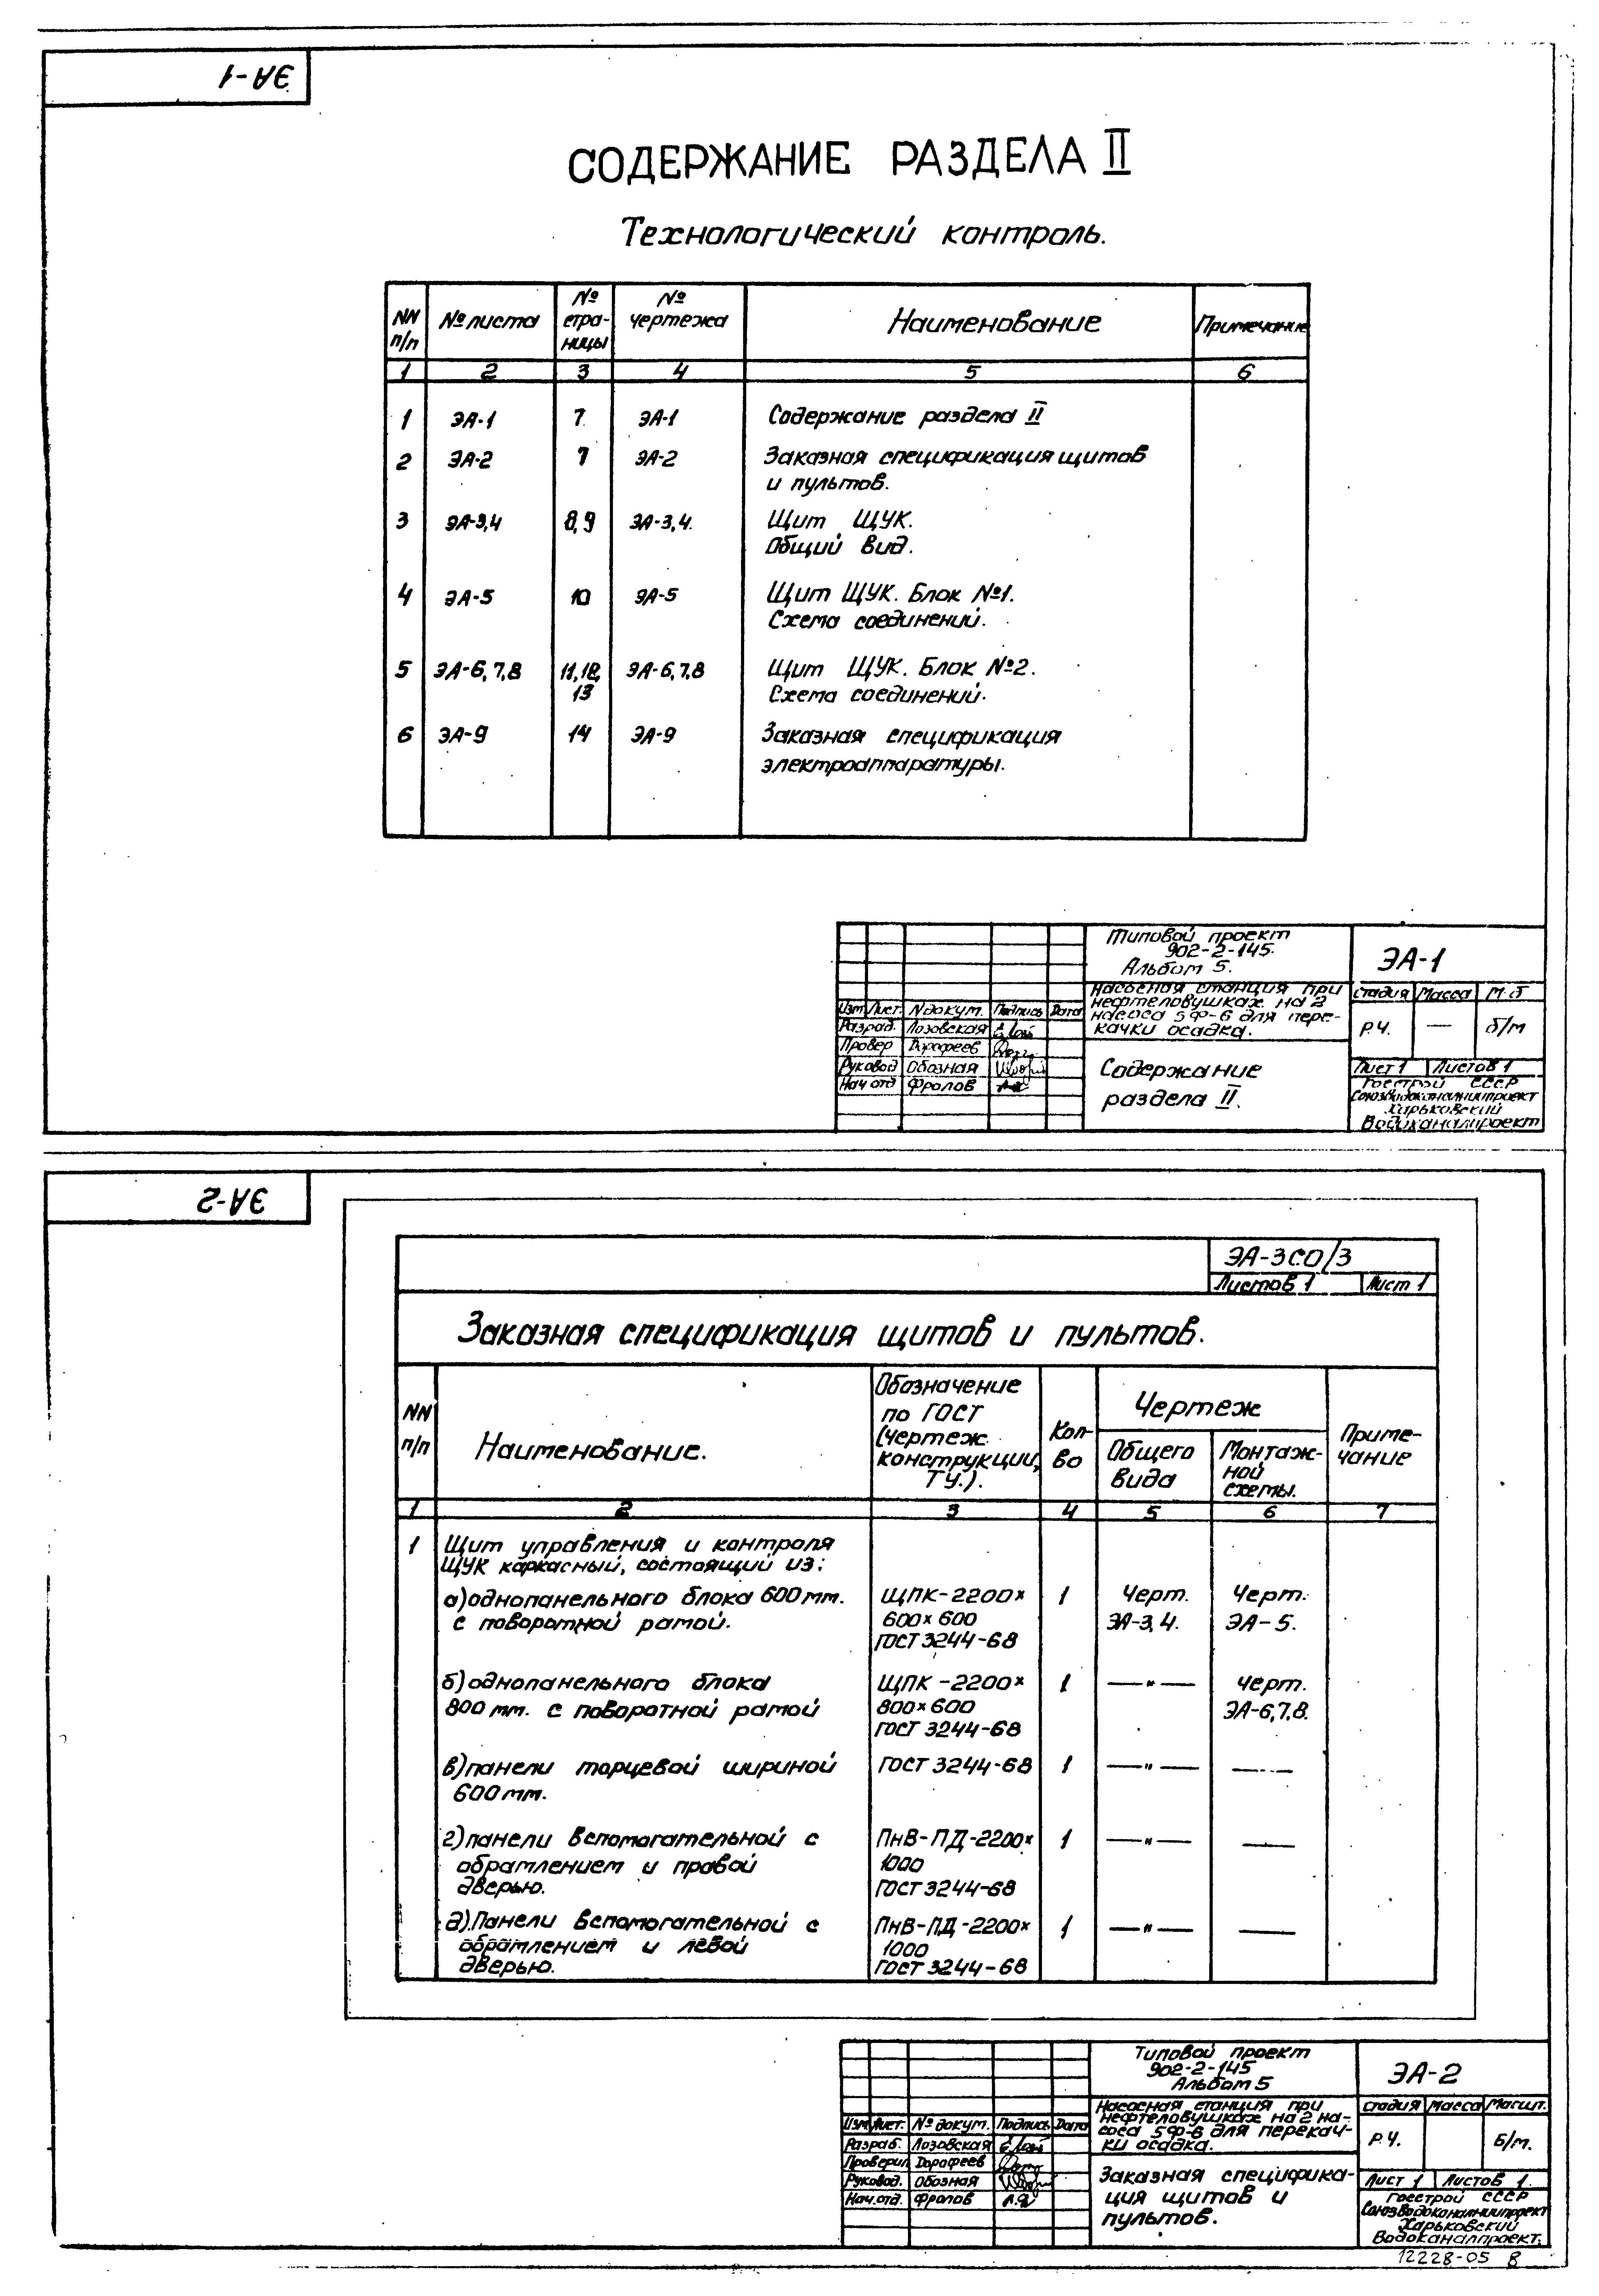 ЭА-1
СОДЕРЖАНИЕ РАЗДЕЛА II
Технологический контроль.
NN п/п | № листа | № стра-ницы | № чертежа | Наименование | Примечание
1 | 2 | 3 | 4 | 5 | 6
1 ЭА-1 7 ЭА-1 Содержание раздела II
2 ЭА-2 7 ЭА-2 Заказная спецификация щитов
и пультов.
3 ЭА-3,4 8,9 ЭА-3,4. Щит ЩУК.
Общий вид.
4 ЭА-5 10 ЭА-5 Щит ЩУК. Блок №1.
Схема соединений.
5 ЭА-6,7,8 11,12, ЭА-6,7,8 Щит ЩУК. Блок №2.
13 Схема соединений.
6 ЭА-9 14 ЭА-9 Заказная спецификация
электроаппаратуры.
Типовой проект
902-2-145.
Альбом 5.
ЭА-1
Насосная станция при
нефтеловушках на 2
насоса 5Ф-6 для пере-
качки осадка.
Стадия Масса М.б
Р.Ч. — б/м
Изм. Лист. N докум. Подпись Дата
Разраб. Лозовская
Провер Дорофеев
Руковод Обозная
Нач отд Фролов
Содержание
раздела II.
Лист 1 Листов 1
Госстрой СССР
Союзводоканалниипроект
Харьковский
Водоканалпроект
ЭА-2
ЭА-3СО/3
Листов 1 Лист 1
Заказная спецификация щитов и пультов.
NN
п/п
Наименование.
Обозначение
по ГОСТ
(чертеж
конструкции,
ТУ.).
Кол-
во
Чертеж
Общего
вида
Монтаж-
ной
схемы.
Приме-
чание
1 2 3 4 5 6 7
1 Щит управления и контроля
ЩУК каркасный, состоящий из:
а) однопанельного блока 600 мм. ЩПК-2200× 1 Черт. Черт.
с поворотной рамой. 600×600 ЭА-3,4. ЭА-5.
ГОСТ 3244-68
б) однопанельного блока ЩПК-2200× 1 —"— Черт.
800 мм. с поворотной рамой 800×600 ЭА-6,7,8.
ГОСТ 3244-68
в) панели торцевой шириной ГОСТ 3244-68 1 —"— —
600 мм.
г) панели вспомогательной с ПнВ-ПД-2200× 1 —"— —
обратлением и правой 1000
дверью. ГОСТ 3244-68
д). Панели вспомогательной с ПнВ-ПД-2200× 1 —"— —
обратлением и левой 1000
дверью. ГОСТ 3244-68
Типовой проект
902-2-145
Альбом 5
ЭА-2
Насосная станция при
нефтеловушках на 2 на-
соса 5Ф-6 для перекач-
ки осадка.
Стадия Масса Масшт.
Р.Ч. Б/м.
Изм. Лист. № докум. Подпись Дата
Разраб. Лозовская
Проверил Дорофеев
Руковод. Обозная
Нач.отд. Фролов
Заказная специфика-
ция щитов и
пультов.
Лист 1 Листов 1.
Госстрой СССР
Союзводоканалниипроект
Харьковский
Водоканалпроект.
12228-05 8